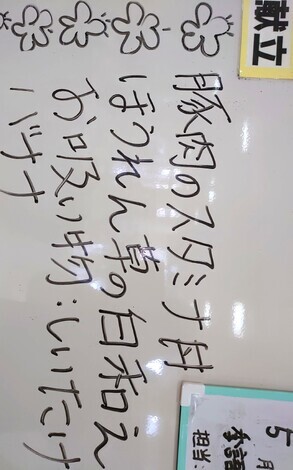 献立
豚肉のスタミナ丼
ほうれん草の白和え
お吸い物:しいたけ
バナナ
5月
担当